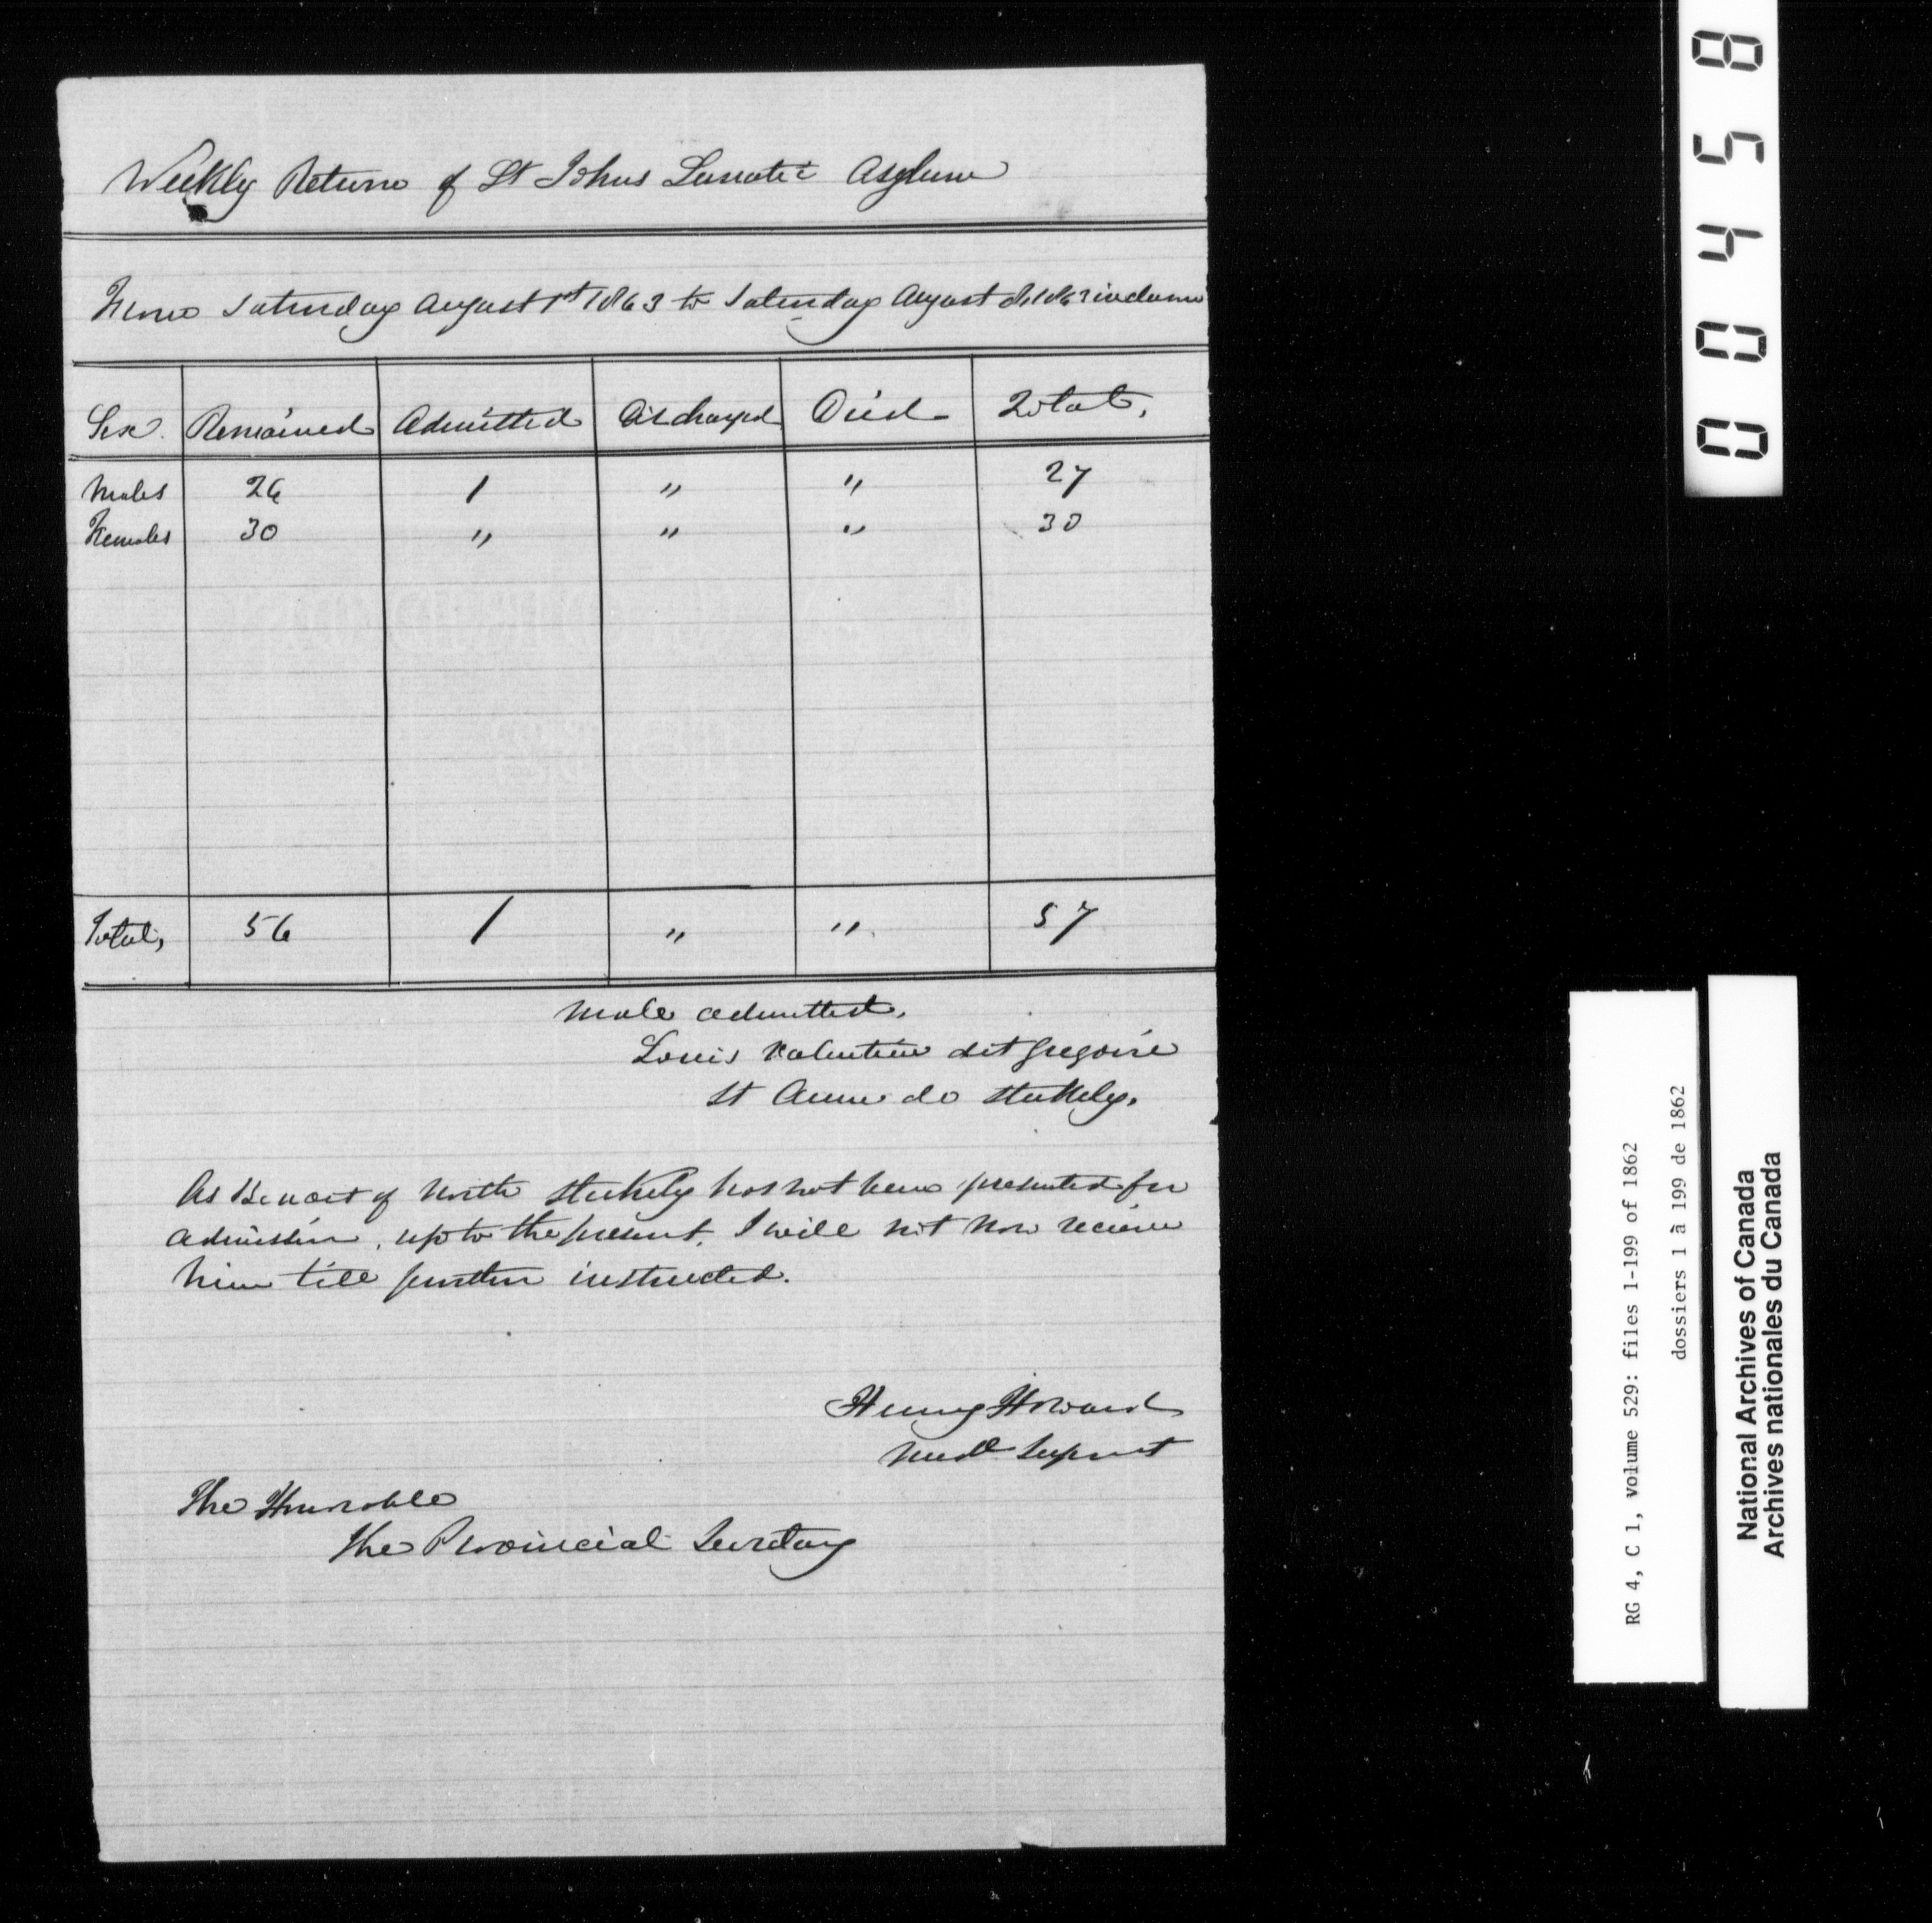 Weekly Return of St Johns Lunatic Asylum
From Saturday August 1st 1863 to Saturday August 8 1863 inclusive
Sex. Remained Admitted Discharged Died - Total,
Males 26 1 " " 27
Females 30 " " " 30
Total, 56 1 " " 57
Male admitted,
Louis Valentin dit Gregoire
St Anne do Stukely.
As Benoit of North Stukely has not been presented for
admission, up to the present, I will not now receive
him till further instructed.
Henry Howard
Medl Supent
The Honorable
The Provincial Secretary
00458
RG 4, C 1, volume 529: files 1-199 of 1862
dossiers 1 à 199 de 1862
National Archives of Canada
Archives nationales du Canada